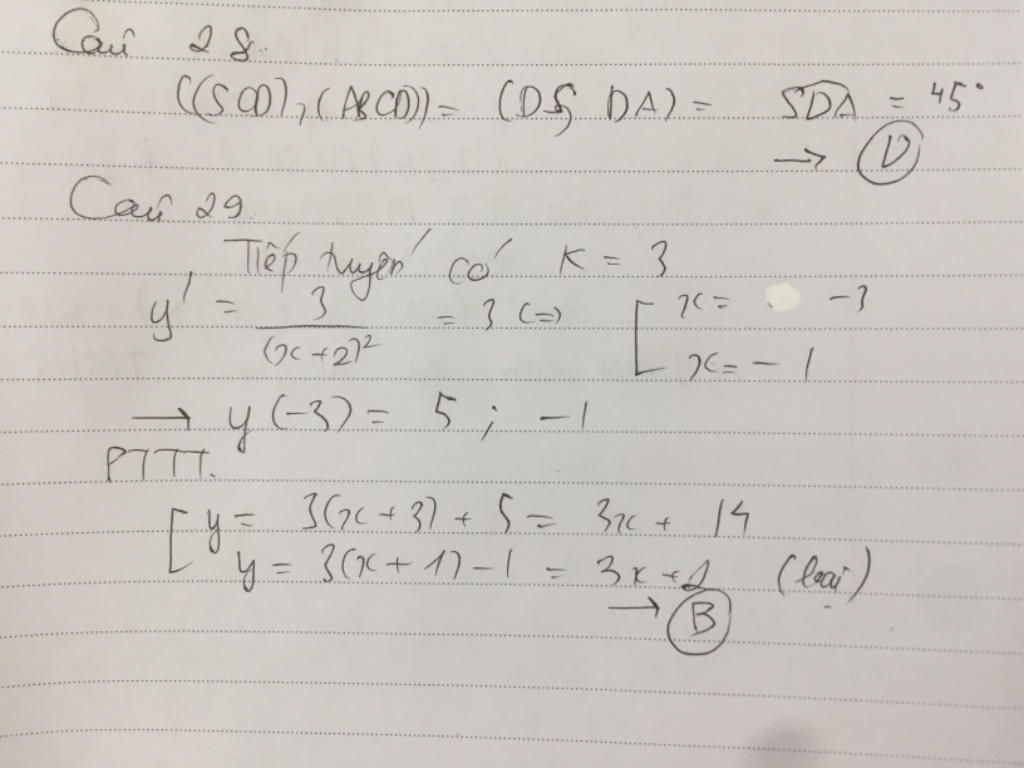 Câu 28.
((SCD), (ABCD)) = (DS, DA) = SDA = 45°
→ D
Câu 29
Tiếp tuyến có K = 3
y' = 3/(x+2)² = 3 <=> [ x = -3
x = -1
→ y(-3) = 5 ; -1
PTTT.
[ y = 3(x+3) + 5 = 3x + 14
y = 3(x+1) - 1 = 3x + 2 (loại)
→ B